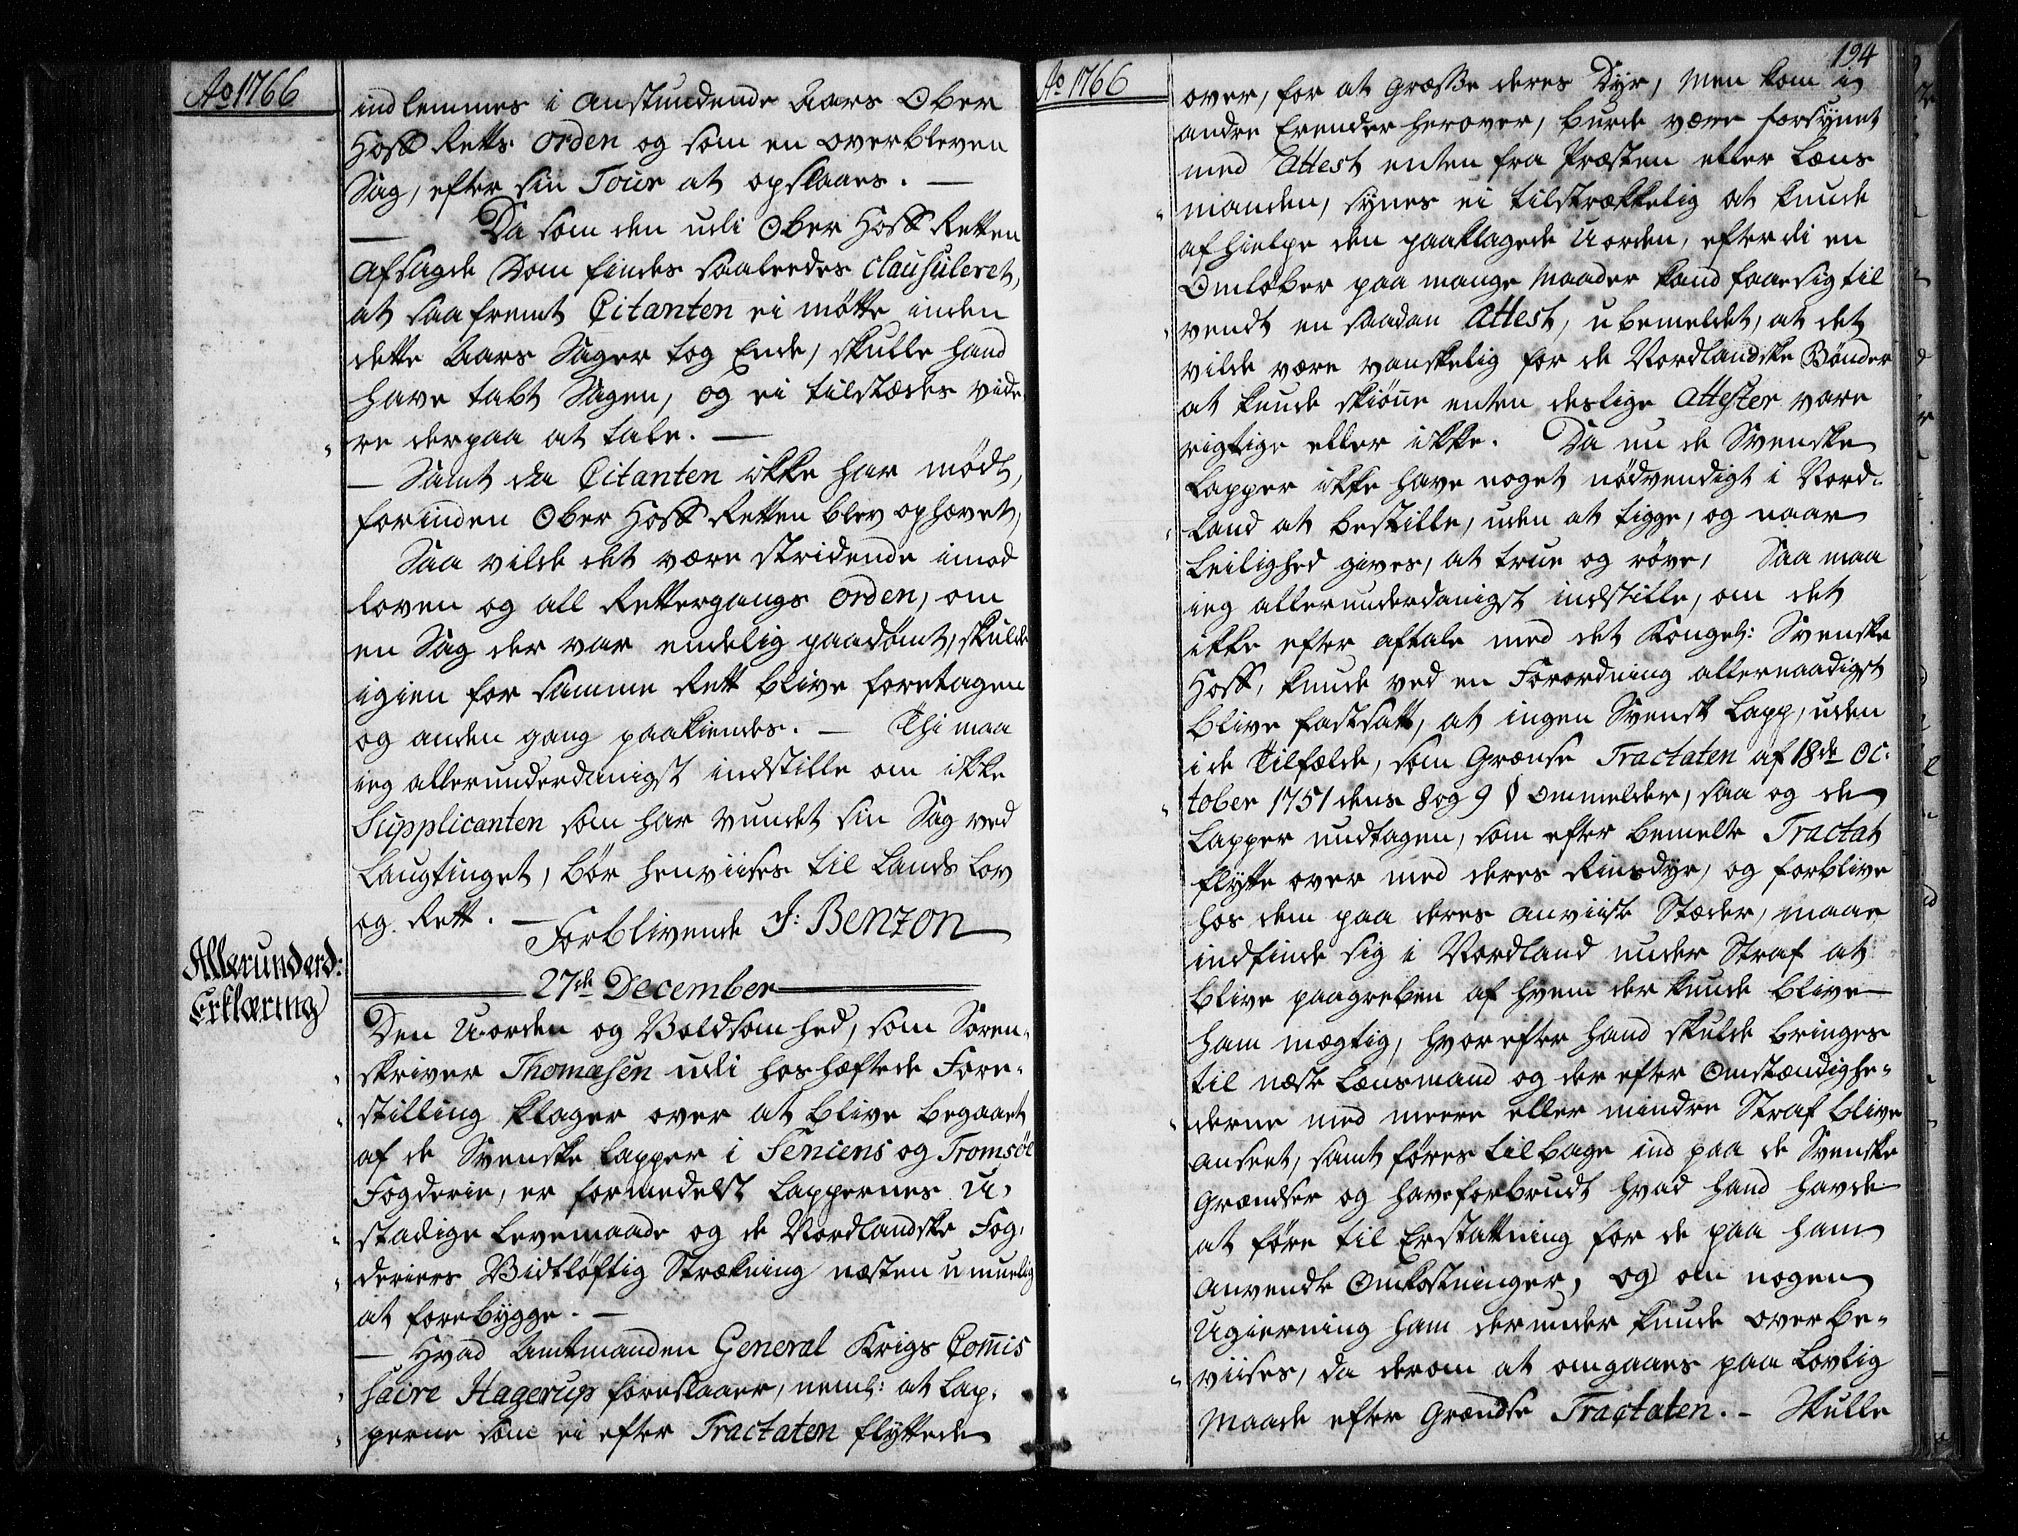 Ao 1766
indlemmes i anstundende Aars Ober
Hoff Retts Orden og som en overbleven
Sag, efter sin Tour at opslaaes. —
— Da som den udi Ober Hoff Retten
afsagde Dom findes saaledes Clausuleret,
at saafremt Citanten ei mötte inden
dette Aars Sager tog Ende, skulle hand
have tabt Sagen, og ei tilstædes vide-
re derpaa at tale. —
— Samt da Citanten ikke har mödt,
forinden Ober Hoff Retten blev ophævet,
Saa vilde det være stridende imod
loven og all Rettergangs Orden, om
en Sag der var endelig paadömt, skulde
igien for samme Rett blive foretagen
og anden gang paakiendes. — Thi maa
ieg allerunderdanigst indstille om ikke
Supplicanten som har vundet sin Sag ved
Laugtinget, bör henviises til Lands Lov
og Rett. —
Forblivende J: Benzon
27de December
Allerunderd:
Erklæring
Den Uorden og Voldsomhed, som Soren-
skriver Thomæsen udi hoshæftede Fore-
stilling klager over at blive begaaet
af de Svenske Lapper i Seniens og Tromsöe
Fogderie, er formedelst Lappernes U-
stadige Levemaade og de Nordlandske Fog-
deriers Vidtlöftig Strækning næsten umuelig
at forebygge. —
— Hvad Amtmanden General Krigs Com̄is
saire Hagerup foreslaaer, neml: at Lap-
perne som ei efter Tractaten flyttede
Ao 1766
194
over, for at græsse deres Dyr, men kom i
andre Erender herover, burde være forsÿnet
med Attest enten fra Præsten eller Læns
manden, synes ei tilstrækkelig at kunde
afhielpe den paaklagede Uorden, efterdi en
Omlöber paa mange Maader kand faae sig til
vendt en saadan Attest, ubemeldet, at det
vilde være vanskelig for de Nordlandske Bönder
at kunde skiön̄e enten deslige Attester vare
rigtige eller ikke. Da nu de Svenske
Lapper ikke have noget nödvendigt i Nord-
land at bestille, uden at tigge, og naar
Leilighed gives, at true og röve, Saa maa
ieg allerunderdanigst indstille, om det
ikke efter aftale med det Kongel: Svenske
Hoff, kunde ved en Forordning allernaadigst
blive fastsatt, at ingen Svensk Lapp, uden
i de Tilfælde, som Grænse Tractaten af 18de Oc-
tober 1751 dens 8 og 9 § ommelder, saa og de
Lapper undtagen, som efter bemelte Tractat
flytte over med deres Rinsdyr, og forblive
hos dem paa deres anviiste Stæder, maae
indfinde sig i Nordland under Straf at
blive paagreben af hvem der kunde blive
ham mægtig, hvorefter hand skulde bringes
til næste Lænsmand og der efter Omstændighe-
derne med meere eller mindre Straf blive
anseet, samt föres tilbage ind paa de Svenske
Grændser og have forbrudt hvad hand havde
at före til Erstattning for de paa ham
anvendte Omkostninger, og om nogen
Ugierning ham derunder kunde overbe-
viises, da derom at omgaaes paa Lovlig
Maade efter Grændse Tractaten. — Skulle